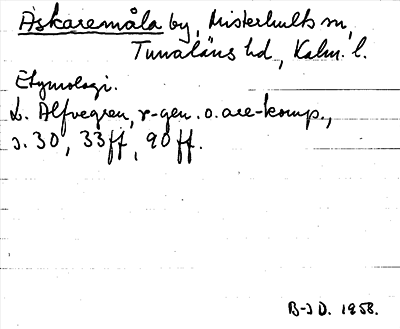 Askaremåla by, Misterhults sn,
Tunaläns hd, Kalm. l.
Etymologi.
L. Alfvegren, r-gen. o. are-komp.,
s. 30, 33ff, 90ff.
B-I D. 1958.